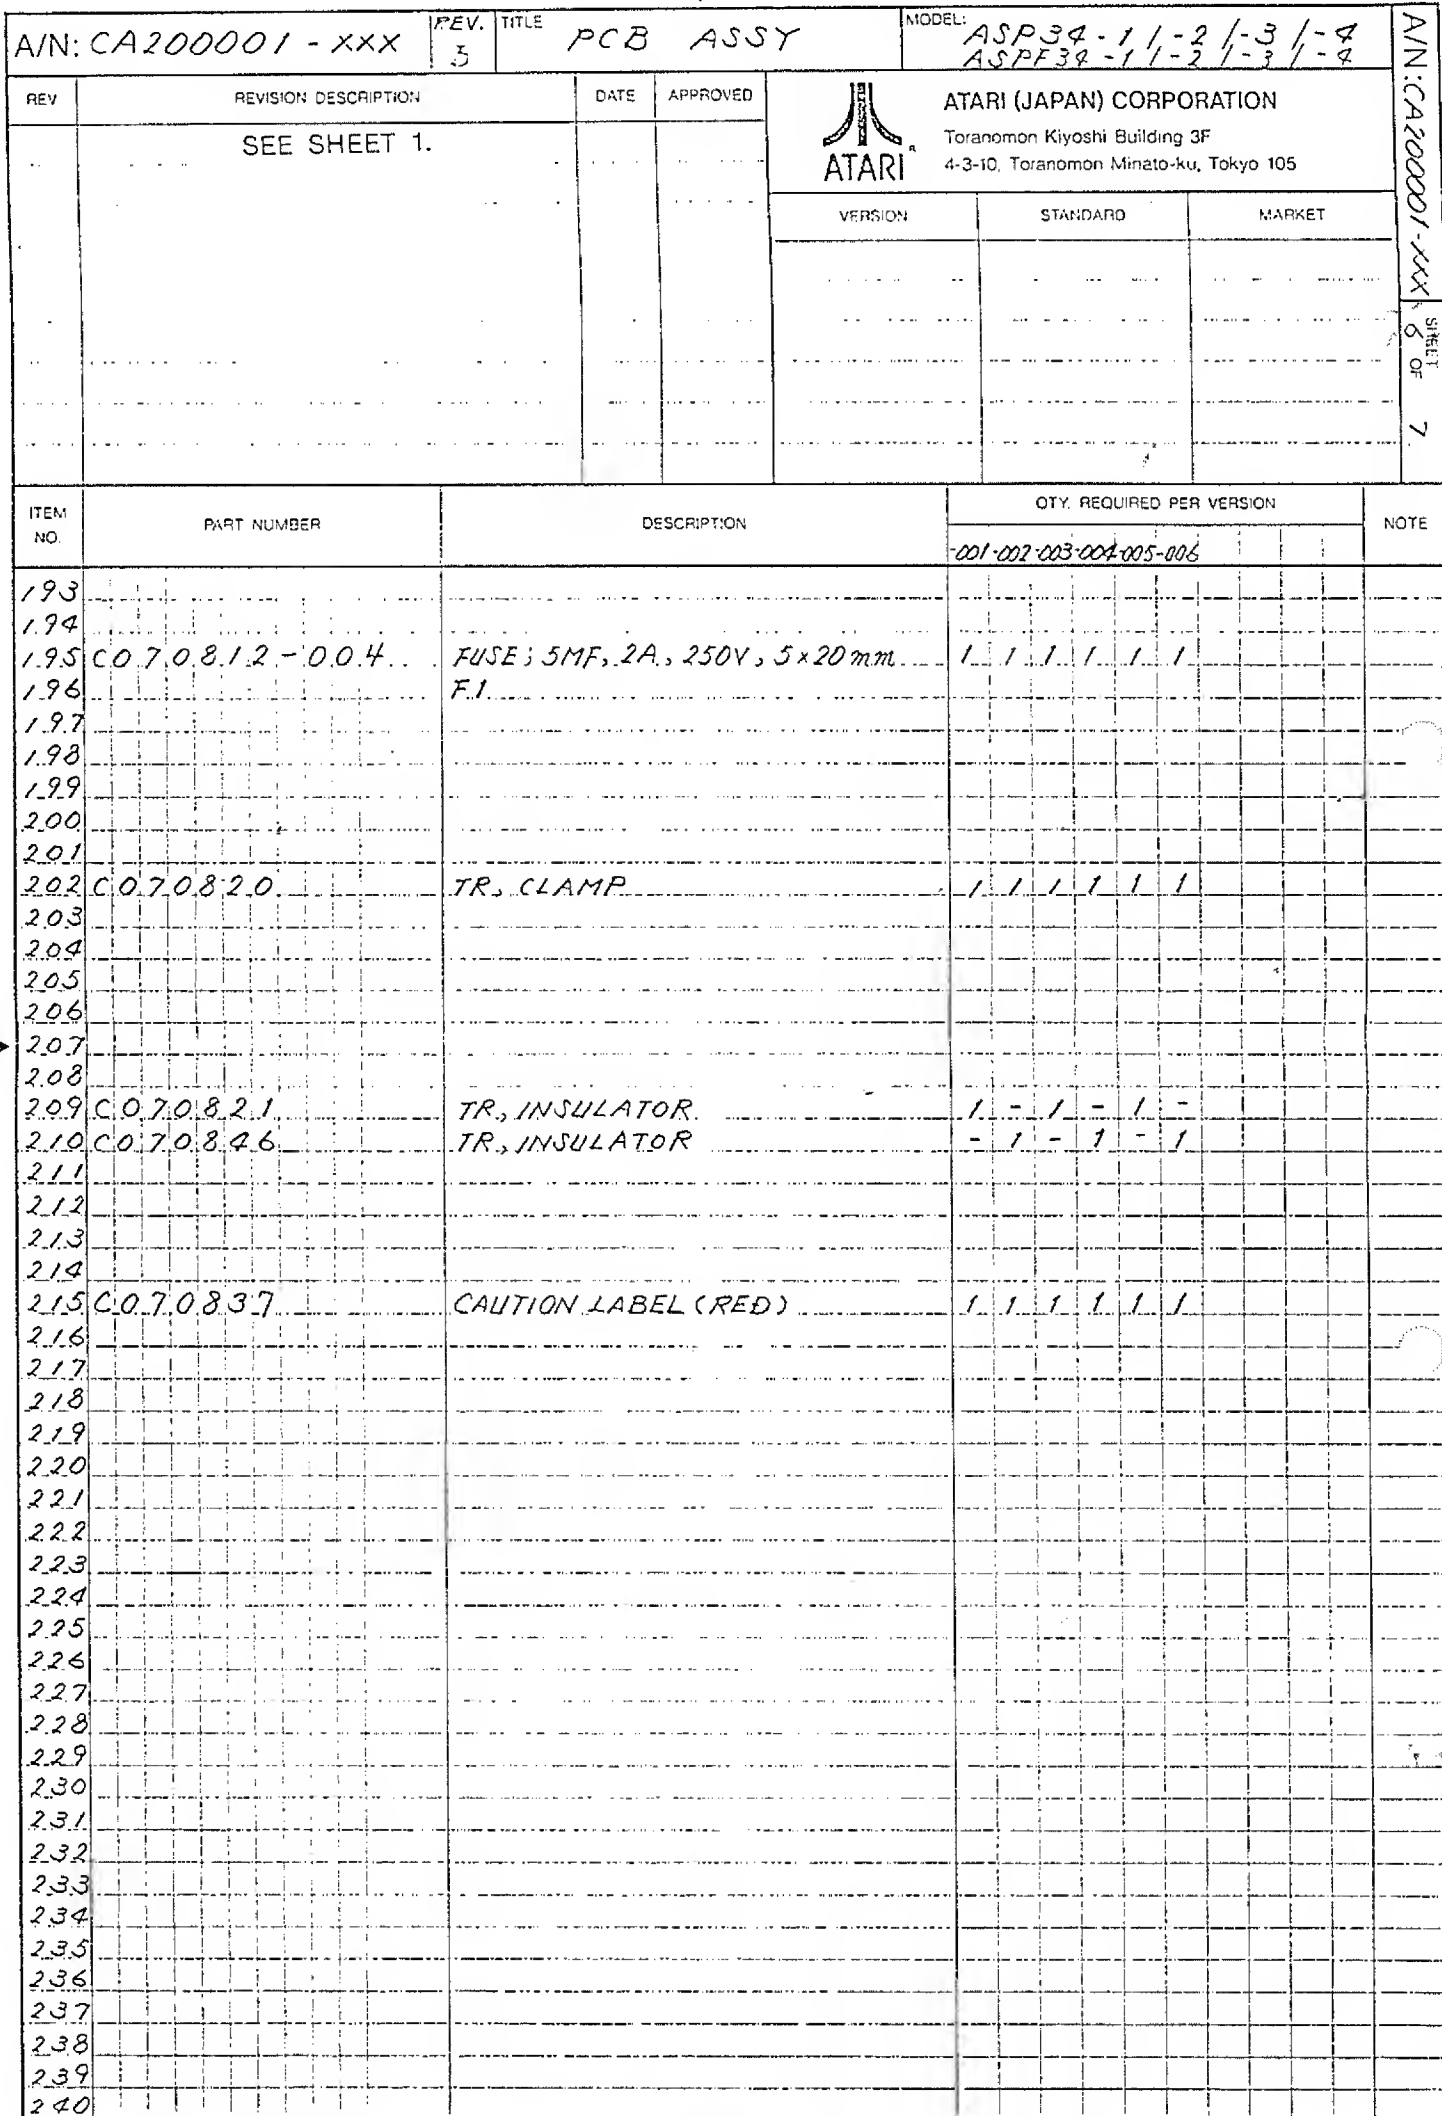 A/N: CA200001 - XXX
REV.
TITLE PCB ASSY
MODEL: ASP34-1/-2/-3/-4
ASPF34-1/-2/-3/-4
REV
REVISION DESCRIPTION
DATE
APPROVED
SEE SHEET 1.
ATARI
ATARI (JAPAN) CORPORATION
Toranomon Kiyoshi Building 3F
4-3-10, Toranomon Minato-ku, Tokyo 105
VERSION
STANDARD
MARKET
A/N: CA200001-XXX
SHEET
6 OF 7
ITEM NO.
PART NUMBER
DESCRIPTION
QTY. REQUIRED PER VERSION
NOTE
-001-002-003-004-005-006
193
194
195 C070812-004 FUSE; 5MF, 2A, 250V, 5×20mm 1 1 1 1 1 1
196 F1
197
198
199
200
201
202 C070820 TR, CLAMP 1 1 1 1 1 1
203
204
205
206
207
208
209 C070821 TR, INSULATOR 1 - 1 - 1 -
210 C070846 TR, INSULATOR - 1 - 1 - 1
211
212
213
214
215 C070837 CAUTION LABEL (RED) 1 1 1 1 1 1
216
217
218
219
220
221
222
223
224
225
226
227
228
229
230
231
232
233
234
235
236
237
238
239
240